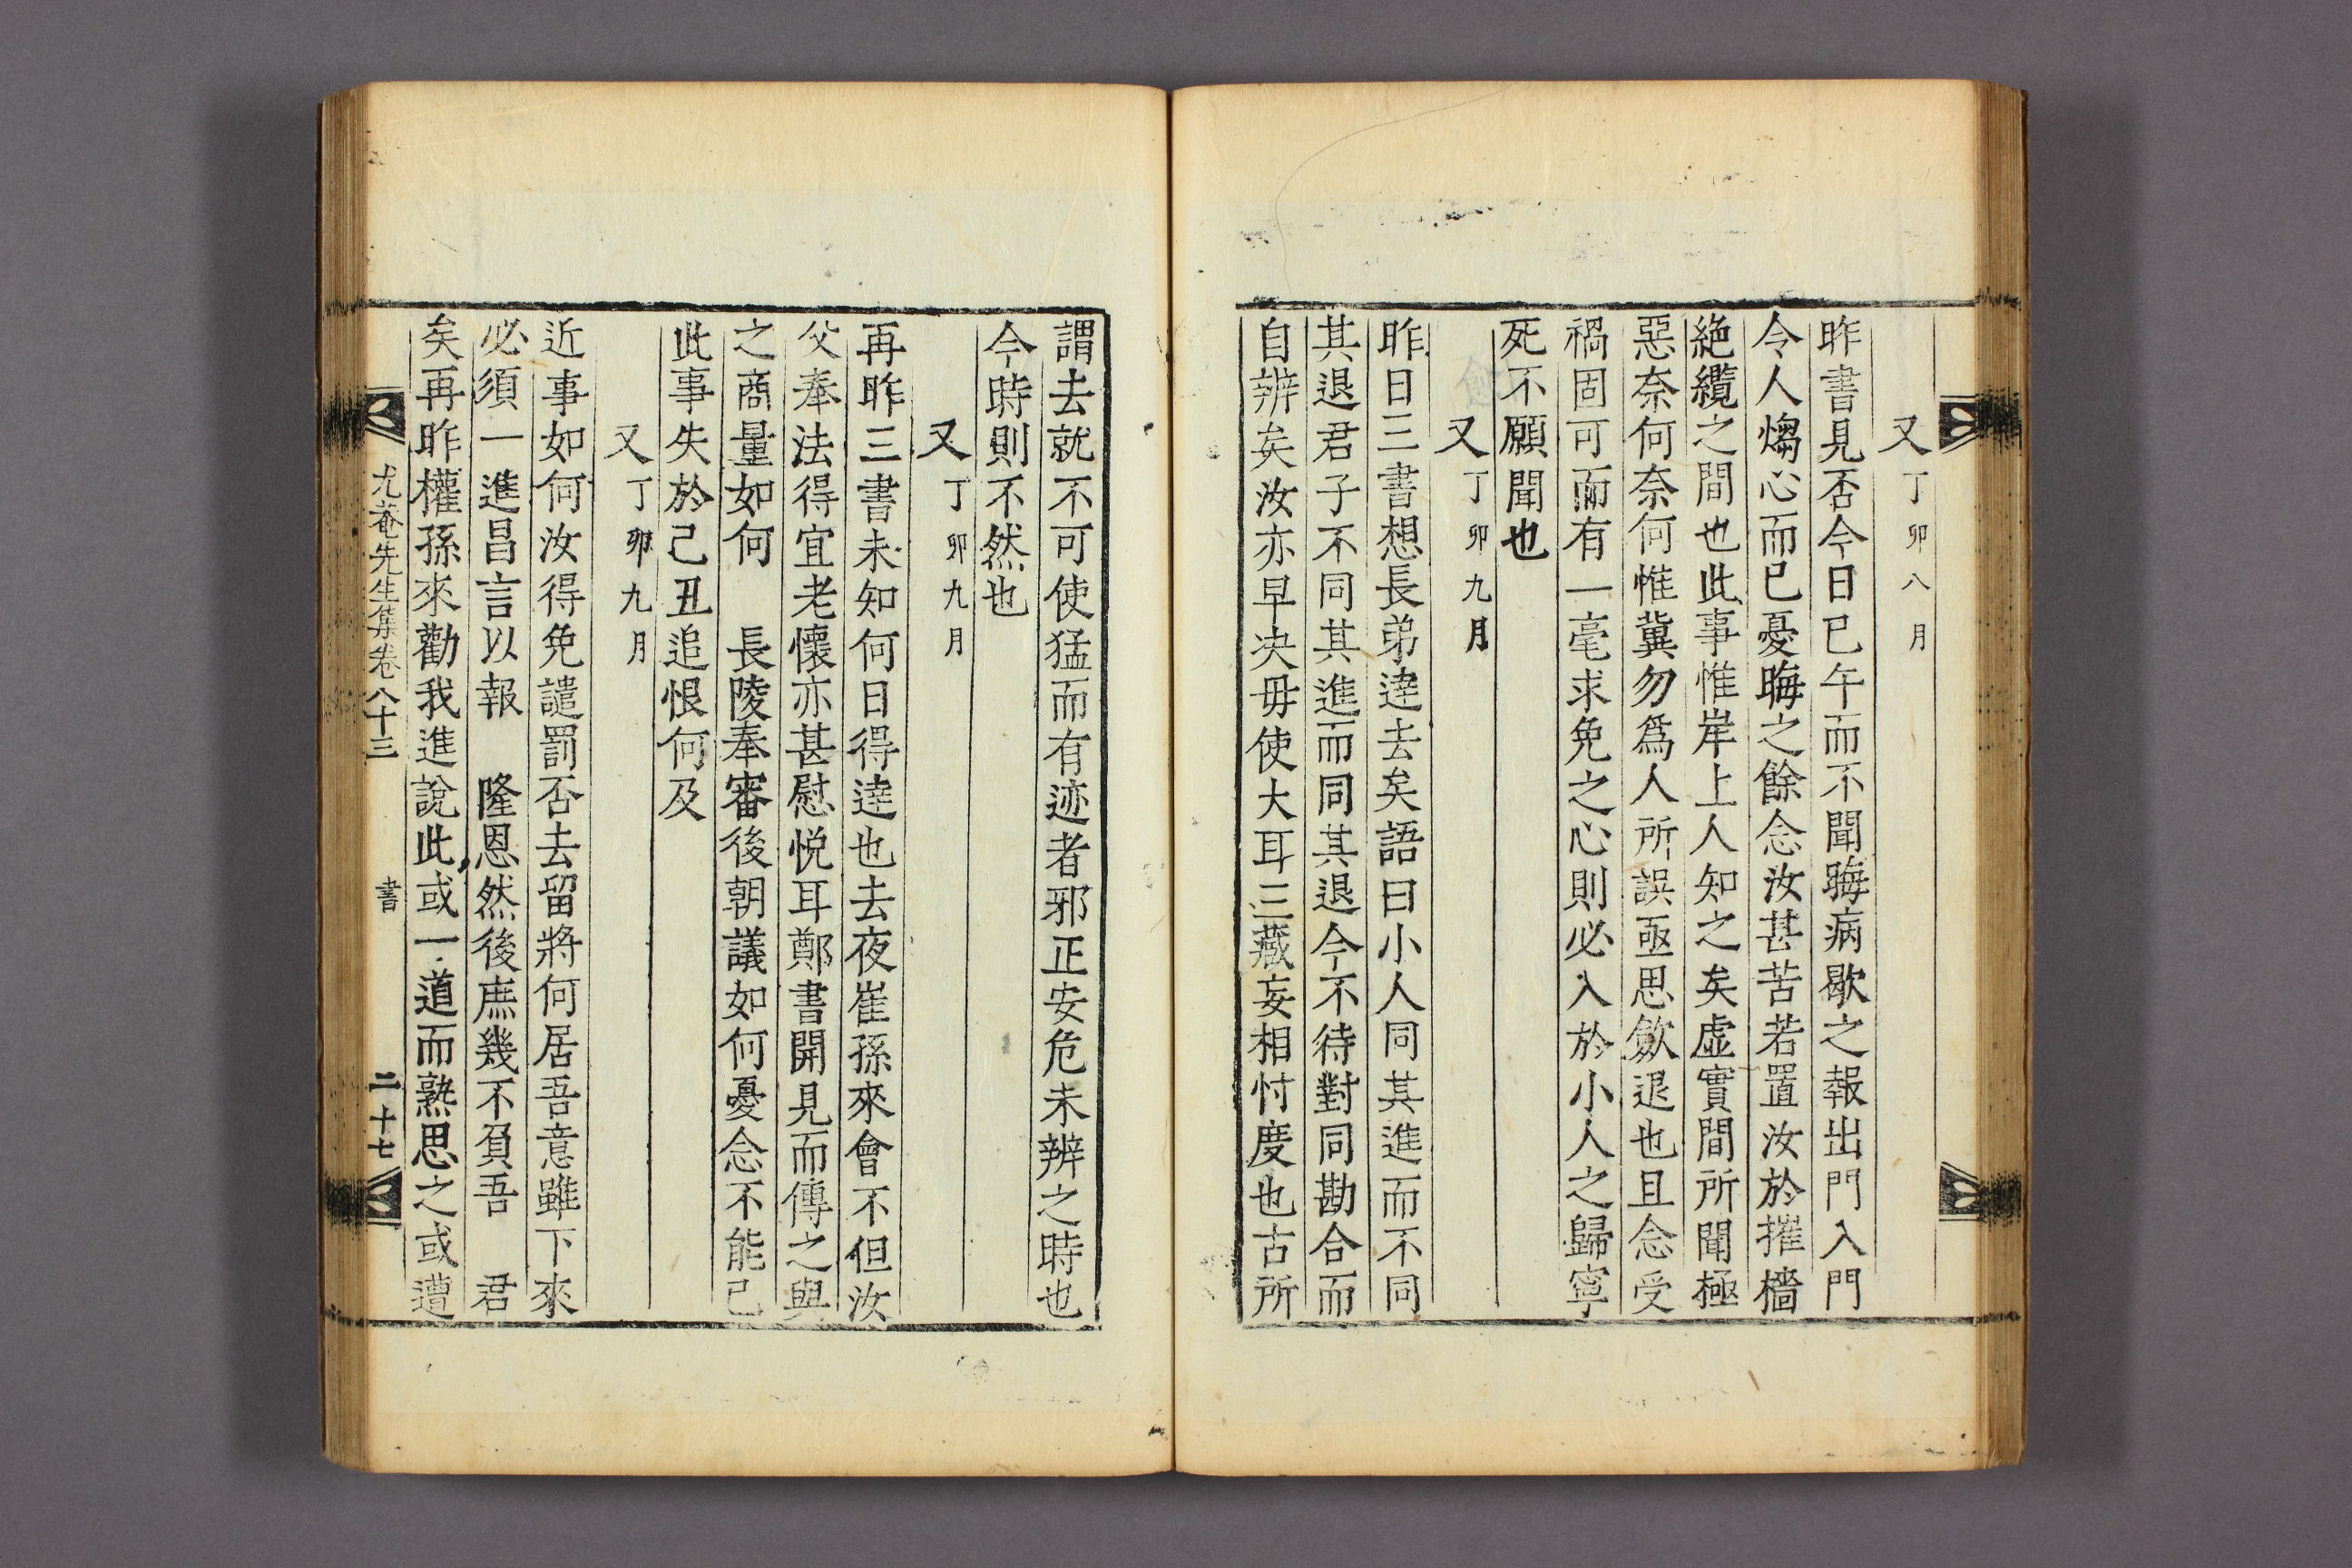 又丁卯八月
昨書見否今日已午而不聞晦病歇之報出門入門
令人爞心而已憂晦之餘念汝甚苦若置汝於摧檣
絶纜之間也此事惟岸上人知之矣虛實間所聞極
惡奈何奈何惟冀勿爲人所誤亟思斂退也且念受
禍固可而有一毫求免之心則必入於小人之歸寧
死不願聞也
又丁卯九月
昨日三書想長弟達去矣語曰小人同其進而不同
其退君子不同其進而同其退今不待對同勘合而
自辨矣汝亦早决毋使大耳三藏妄相忖度也古所
謂去就不可使猛而有迹者邪正安危未辨之時也
今時則不然也
又丁卯九月
再昨三書未知何日得達也去夜崔孫來會不但汝
父奉法得宜老懷亦甚慰悦耳鄭書開見而傳之與
之商量如何 長陵奉審後朝議如何憂念不能已
此事失於己丑追恨何及
又丁卯九月
近事如何汝得免譴罰否去留將何居吾意雖下來
必須一進昌言以報 隆恩然後庶幾不負吾 君
矣再昨權孫來勸我進說此或一道而熟思之或遭
尤菴先生集卷八十三 書 二十七